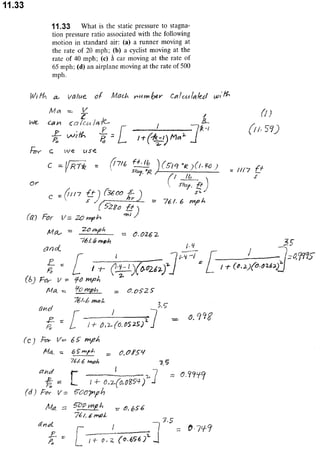 11.33
11.33 What is the static pressure to stagna-
tion pressure ratio associated with the following
motion in standard air: (a) a runner moving at
the rate of 20 mph; (b) a cyclist moving at the
rate of 40 mph; (c) a car moving at the rate of
65 mph; (d) an airplane moving at the rate of 500
mph.
With a value of Mach number calculated with
Ma = V/c (1)
we can calculate
p/p₀ with p/p₀ = [ 1 / (1 + (k-1)/2 Ma²) ]^(k/(k-1)) (11.59)
For c we use
c = √RTk = √(1716 ft.lb/slug.°R)(519 °R)(1.40) / (1 lb/(slug.ft/s²)) = 1117 ft/s
or
c = (1117 ft/s)(3600 s/hr) / (5280 ft/mi) = 761.6 mph
(a) For V = 20 mph
Ma = 20 mph / 761.6 mph = 0.0262
and
p/p₀ = [ 1 / (1 + (1.4-1)/2 (0.0262)²) ]^(1.4/(1.4-1)) = [ 1 / (1 + (0.2)(0.0262)²) ]^3.5 = 0.9995
(b) For V = 40 mph
Ma = 40 mph / 761.6 mph = 0.0525
and
p/p₀ = [ 1 / (1 + 0.2(0.0525)²) ]^3.5 = 0.998
(c) For V = 65 mph
Ma = 65 mph / 761.6 mph = 0.0854
and
p/p₀ = [ 1 / (1 + 0.2(0.0854)²) ]^3.5 = 0.9949
(d) For V = 500 mph
Ma = 500 mph / 761.6 mph = 0.656
and
p/p₀ = [ 1 / (1 + 0.2 (0.656)²) ]^3.5 = 0.749